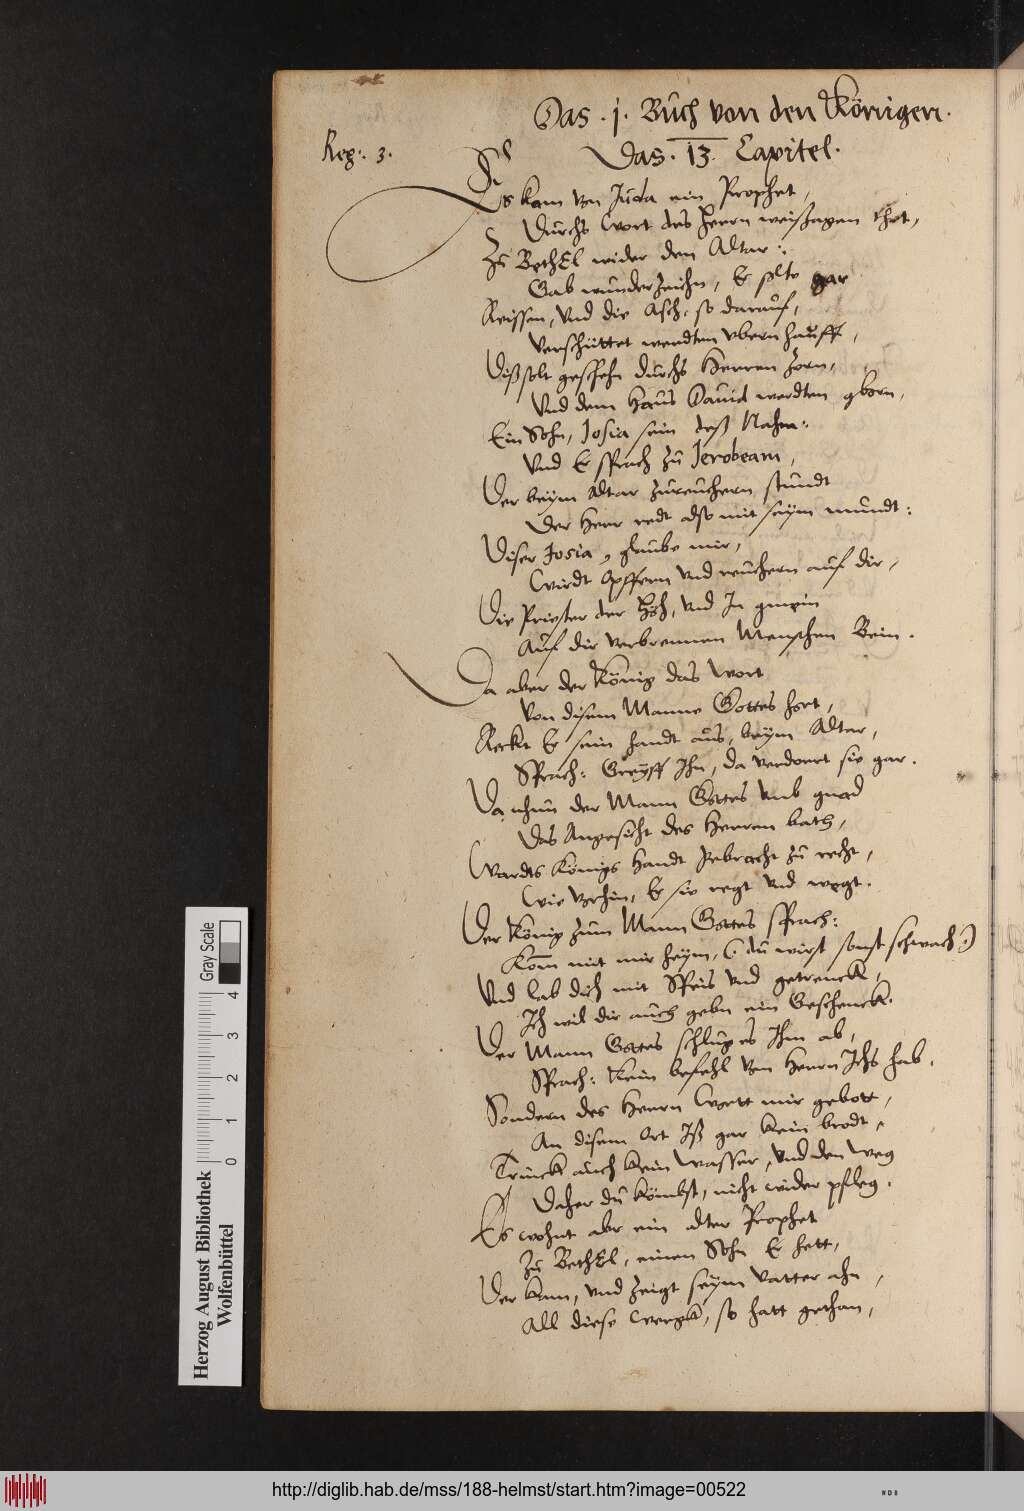 Das .j. Buch von den Königen.
Reg: 3.
Das. 13. Capitel.
Es kam von Juda ein Prophet,
Durchs Wort des Herrn weissagen thet,
Zu BethEl wider den Altar:
Gab wunderzeichn, Er solte gar
Reissen, Vnd die Asch, so darauf,
Verschüttet werdten vbern hauff,
Diß solt geschehn durchs Herren Zorn,
Vnd dem Haus Dauid werdten gborn,
Ein Sohn, Josia sein deß Nahm:
Vnd Er sprach zu Jerobeam,
Der beym Altar zureuchern stundt
Der Herr redt also mit seym mundt:
Diser Josia, glaube mir,
Wirdt Opffern vnd reuchern auf dir,
Die Priester der Höh, vnd In gmein
Auf dir verbrennen Menschen Bein.
Da aber der König das Wort
Von disem Manne Gottes hort,
Reckt Er sein handt aus, beym Altar,
Sprach: Greyff Ihn, da verdorrt sie gar.
Da nhun der Mann Gottes vmb gnad
Das Angesicht des Herren bath,
Wardts Königs Handt gebracht zu recht,
Wie vorhin, Er sie regt vnd wegt.
Der König zum Mann Gottes sprach:
Kom mit mir heym, (du wirst sonst schwach:)
Vnd lab dich mit Speis vnd getrenck,
Ich wil dir auch gebn ein Geschenck.
Der Mann Gottes schlug es Ihm ab,
Sprach: Kein befehl von Herrn Ichs hab.
Sondern des Herrn Wort mir gebott,
An disem Ort Iß gar kein brodt,
Trinck auch kein Wasser, vnd den Weg
Daher du kömbst, nicht wider pfleg.
Es wohnt aber ein alter Prophet
Zu BethEl, einen Sohn Er hett,
Der kam, vnd zeigt seym Vatter ahn,
All diese werck, so hatt gethan,
Herzog August Bibliothek
Wolfenbüttel
0 1 2 3 4
Gray Scale
http://diglib.hab.de/mss/188-helmst/start.htm?image=00522